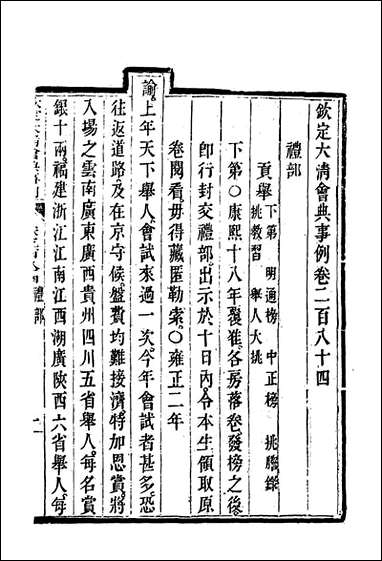 欽定大淸會典事例卷二百八十四
禮部
貢舉 下第 明通榜 中正榜 挑謄錄
挑教習 舉人大挑
下第○康熙十八年覆准各房落卷發榜之後
即行封交禮部出示於十日內令本生領取原
卷閱看毋得藏匿勒索○雍正二年
諭上年天下舉人會試來過一次今年會試者甚多恐
往返道路及在京守候盤費均難接濟特加恩賞將
入場之雲南廣東廣西貴州四川五省舉人每名賞
銀十兩福建浙江江南江西湖廣陝西六省舉人每